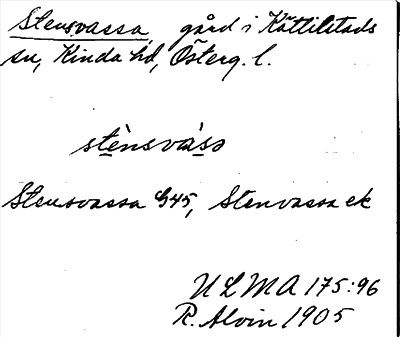 Stensvassa, gård i Kättilstads
sn, Kinda hd, Österg. l.
stènsvás̱s
Stensvassa G45, Stenvassa ek
ULMA 175:96
R. Alvin 1905